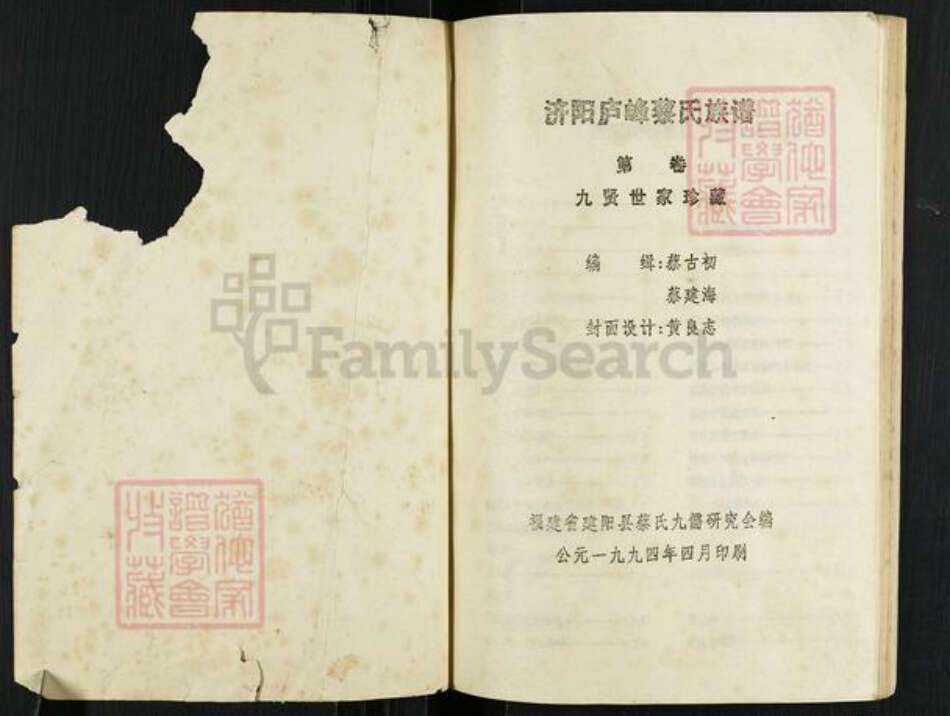 济阳庐峰蔡氏族谱
第 卷
九贤世家珍藏
编 辑:蔡古初
蔡建海
封面设计:黄良志
福建省建阳县蔡氏九儒研究会编
公元一九九四年四月印刷
FamilySearch
譜學會